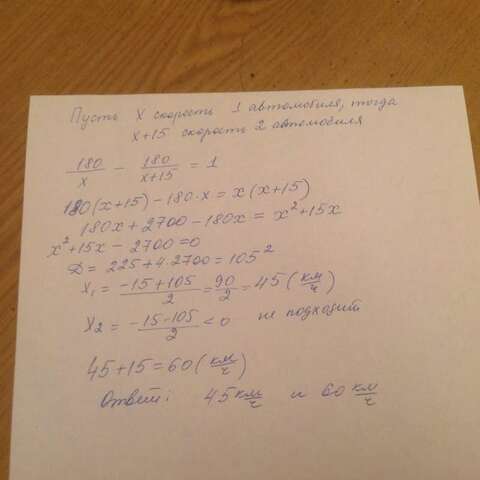 Пусть x скорость 1 автомобиля, тогда
x+15 скорость 2 автомобиля
180/x − 180/x+15 = 1
180(x+15)−180·x = x(x+15)
180x+2700−180x = x²+15x
x²+15x−2700=0
D = 225+4·2700=105²
x₁ = −15+105/2 = 90/2 = 45 (км/ч)
x₂ = −15−105/2 < 0 не подходит
45+15=60 (км/ч)
Ответ: 45 км/ч и 60 км/ч